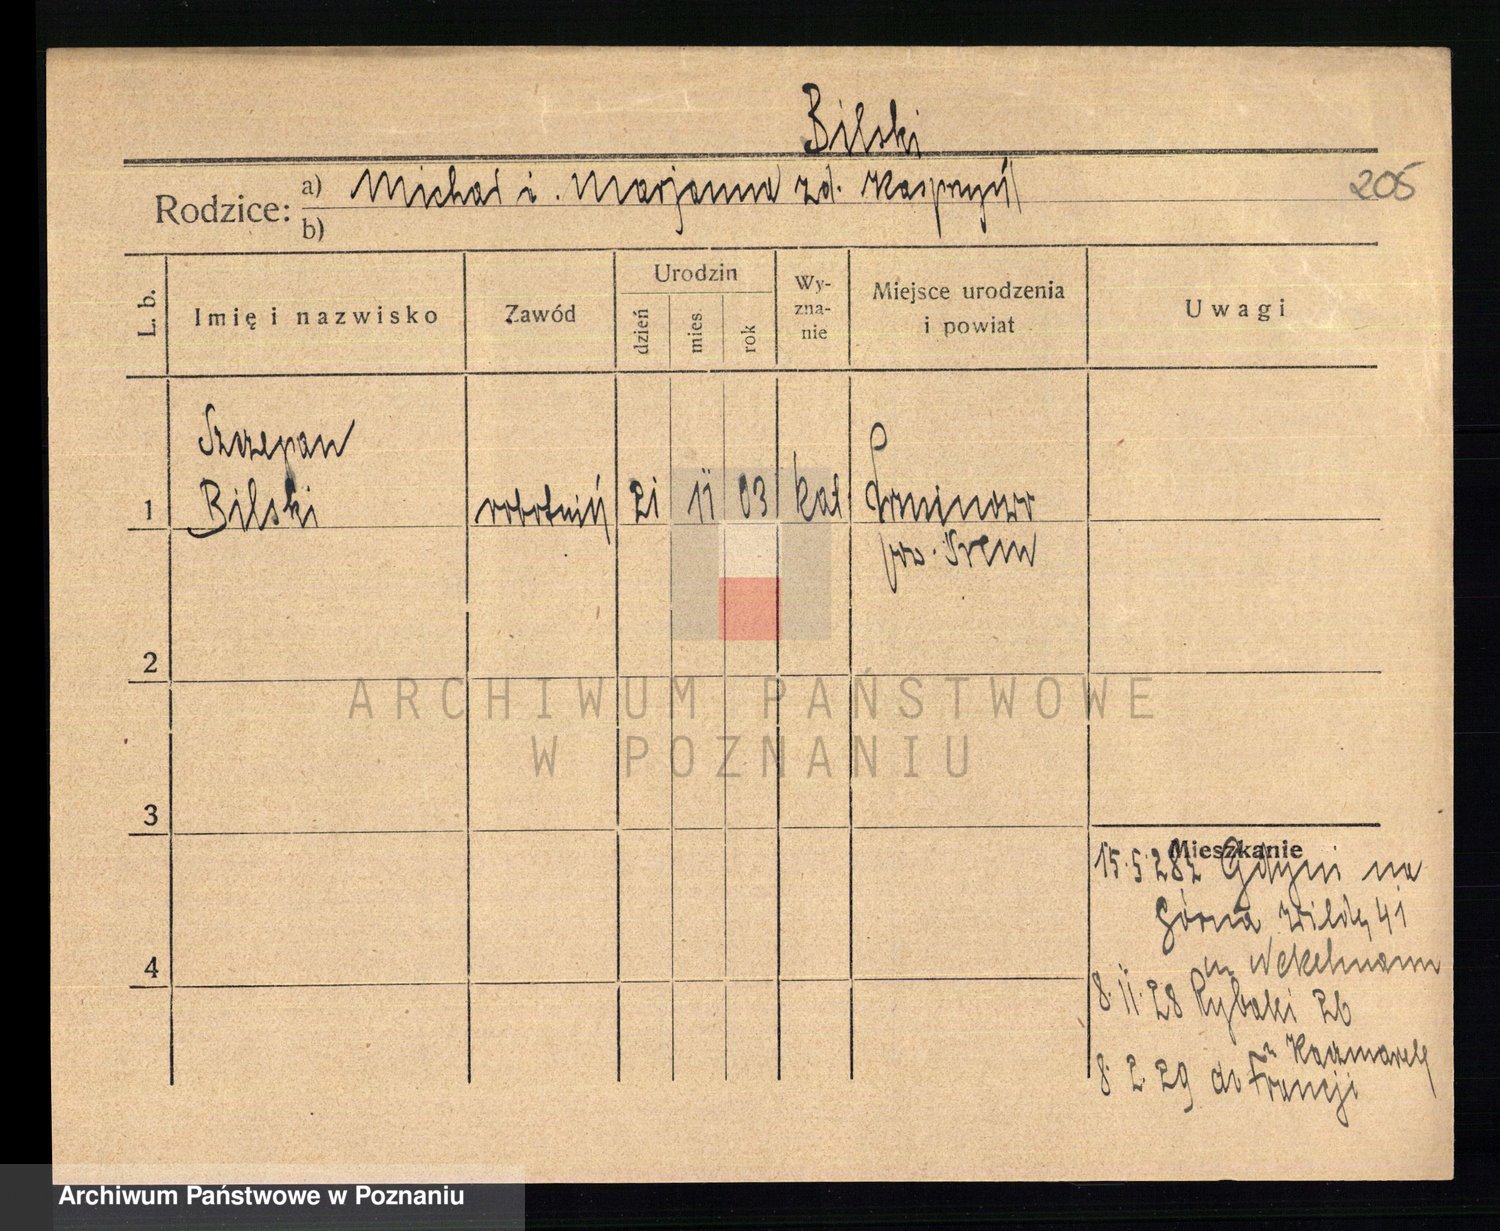 Bilski
Rodzice: a) Michał i Marjanna zd.
b)
205
L. b.
Imię i nazwisko
Zawód
Urodzin
dzień
mies.
rok
Wy-
zna-
nie
Miejsce urodzenia
i powiat
Uwagi
Szczepan
1 Bilski robotnik 21 11 03 kat
pow. Śrem
2
3
4
Mieszkanie
15.5.28 z Gdyni na
Górna Wilda 41
u
8.11.28 Rybaki 26
u Kaczmarek
8.2.29 do Francji
ARCHIWUM PAŃSTWOWE
W POZNANIU
Archiwum Państwowe w Poznaniu